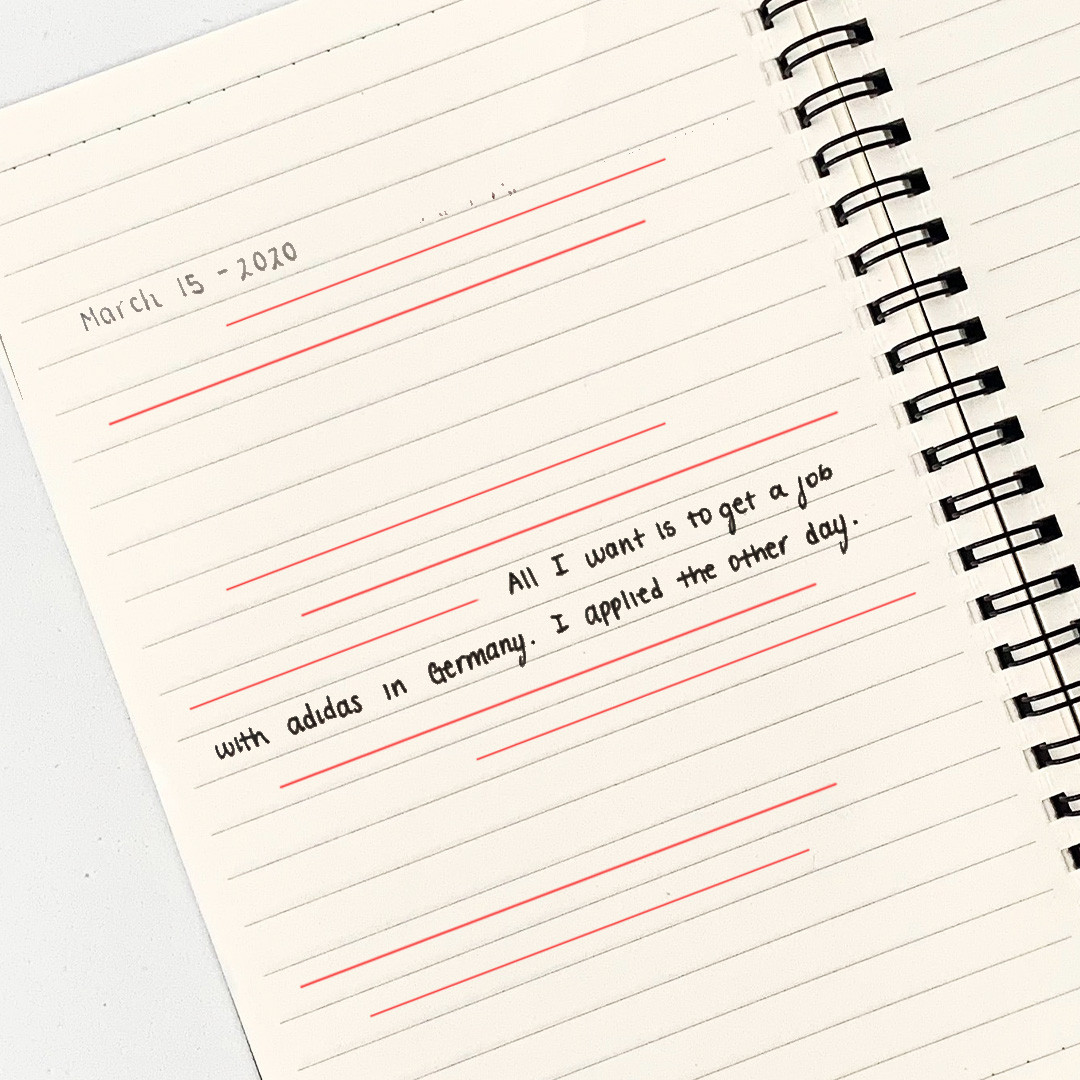 March 15 - 2020
All I want is to get a job
with adidas in Germany. I applied the other day.